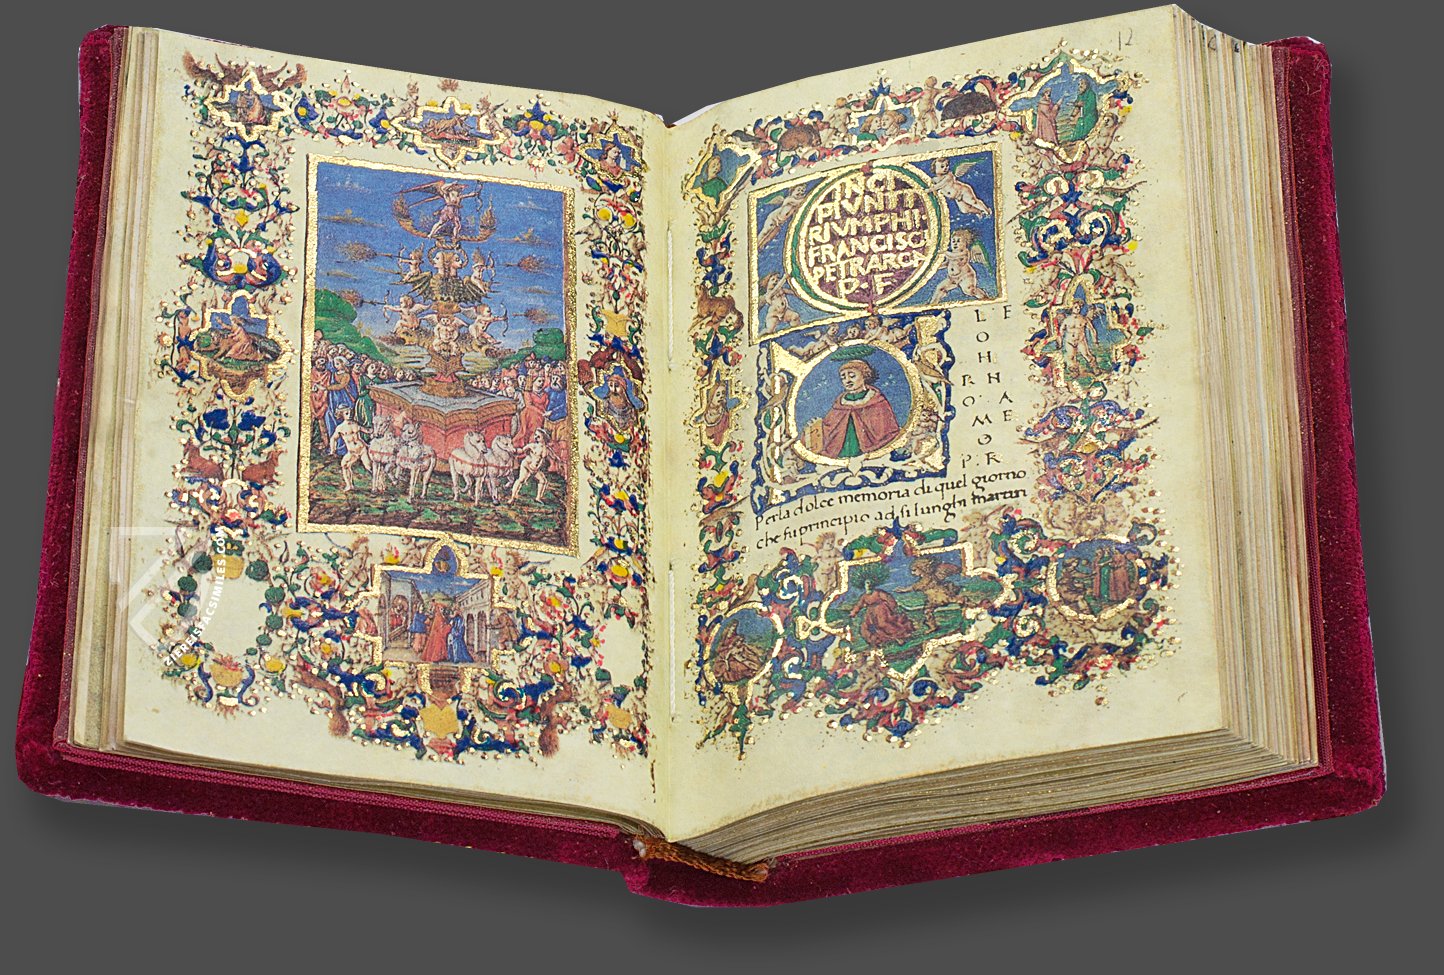 12
INCI
PIVNT T
RIVMPHI
FRANCISCI
PETRARCA
P·F
Perla dolce memoria di quel giorno
che fu principio ad si lunghi martiri
ZIEREISFACSIMILES.COM